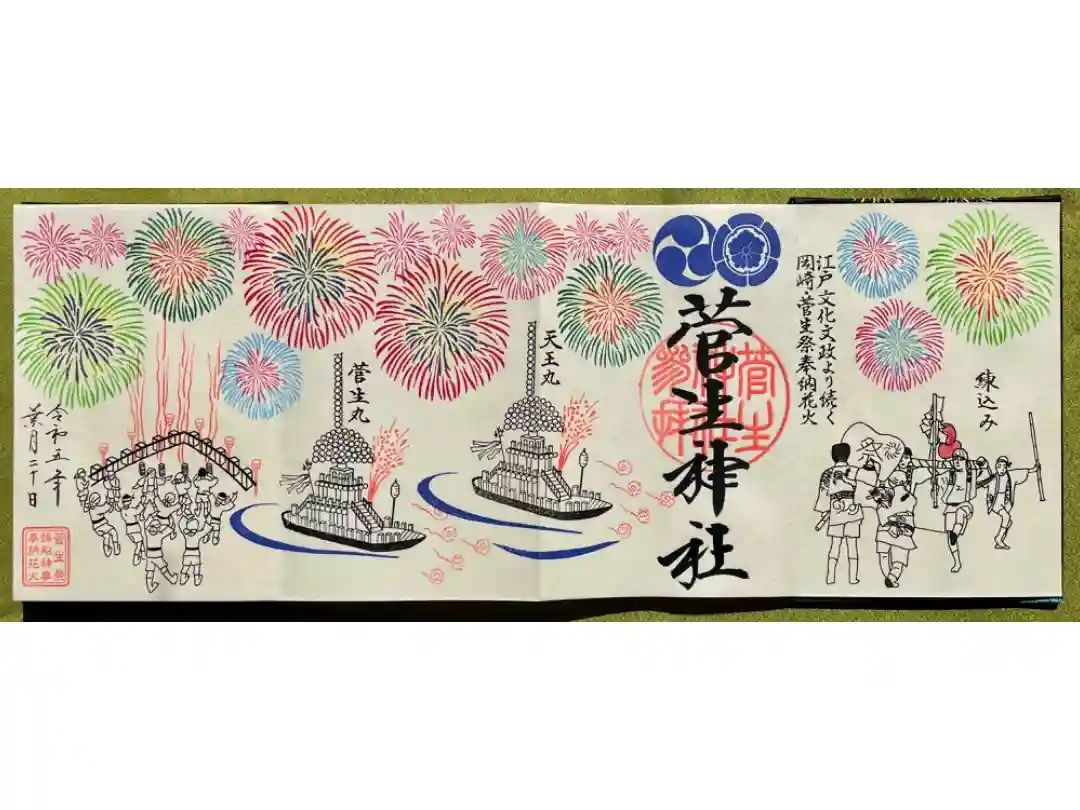 練込み
江戸文化文政より続く
岡崎・菅生祭奉納花火
菅生神社
天王丸
菅生丸
令和五年
葉月二十日
菅生祭
鉾船神事
奉納花火